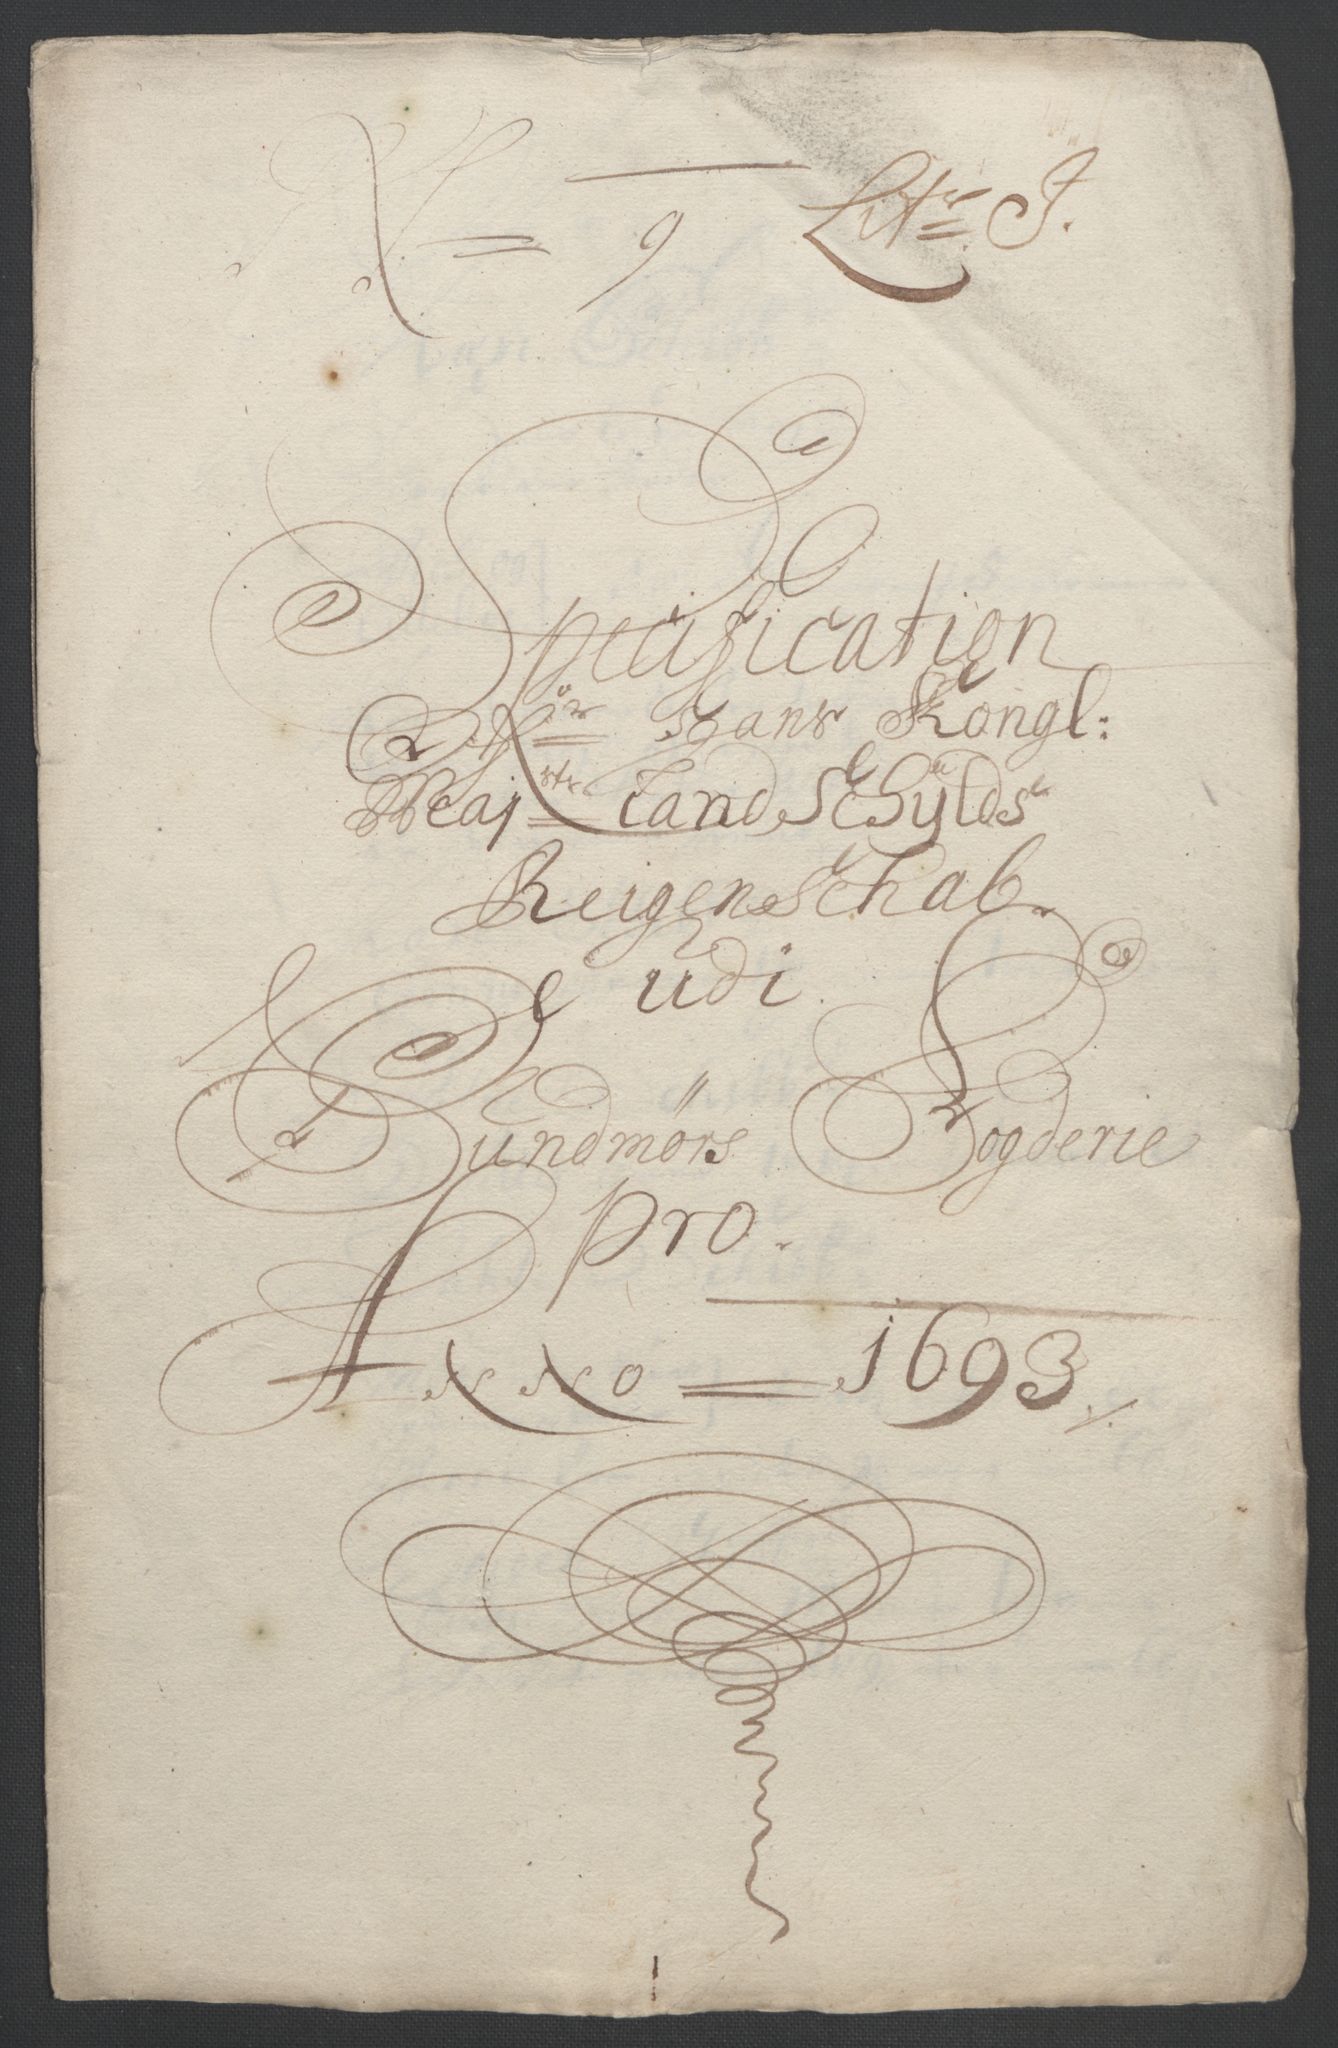 N = 9 Litr J.
Specification
Ofr Hans Kongl:
Majsts LandSchÿlds
ReigenSchab
udi
Sundmörs Fogderie
pro.
Anno = 1693